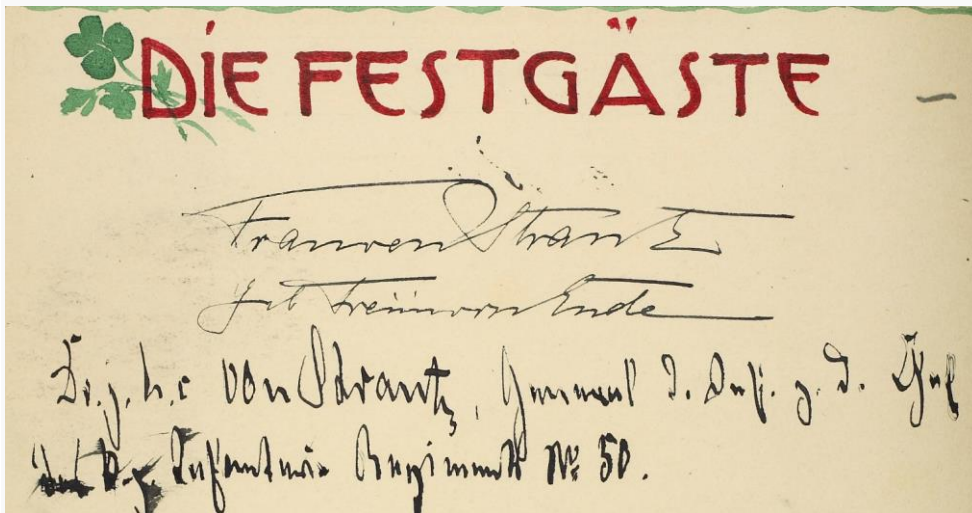 DIE FESTGÄSTE
Frau von Strantz
geb Freiin von Ende
Dr. j. h. c von Strantz, General d. Inf. z. D. Chef
Infanterie Regiments № 50.